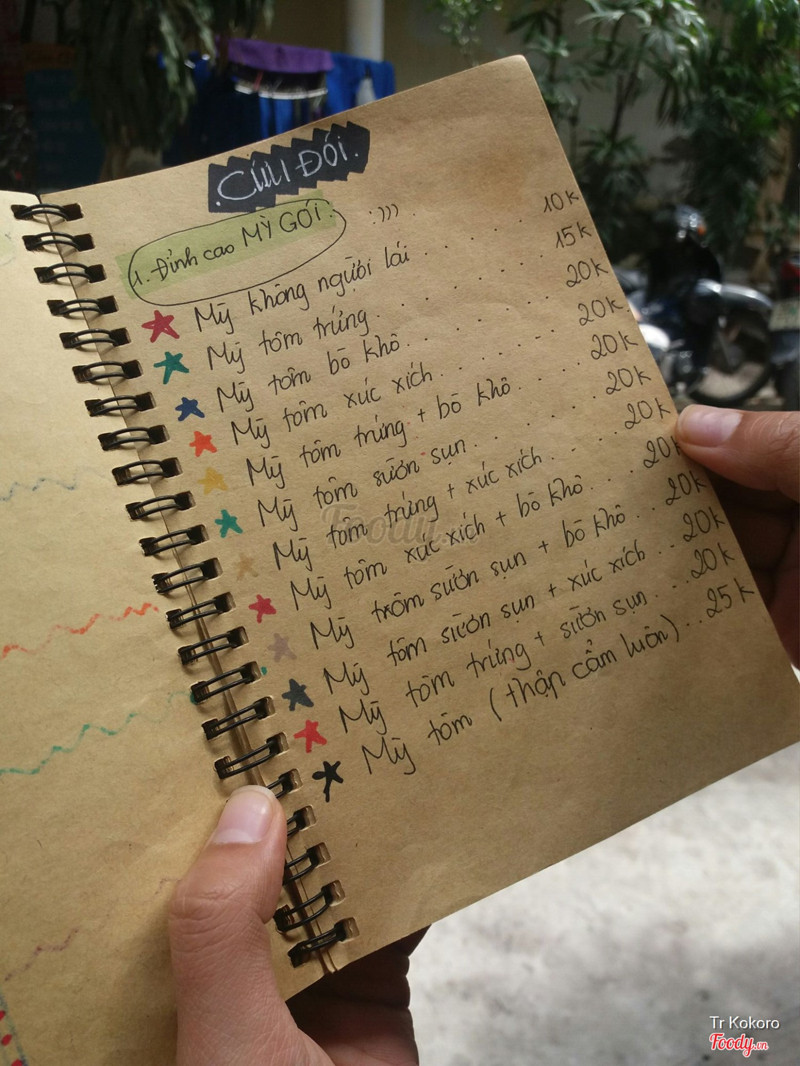 .CỨU ĐÓI.
1. Đỉnh cao MỲ GÓI. :))) .
Mỹ không người lái . . . . . . 10k
Mỹ tôm trứng . . . . . . 15k
Mỹ tôm bò khô . . . . . . 20k
Mỹ tôm xúc xích . . . . . . 20k
Mỹ tôm trứng + bò khô . . . . 20k
Mỹ tôm sườn sụn . . . . . . 20k
Mỹ tôm trứng + xúc xích . . . . 20k
Mỹ tôm xúc xích + bò khô . . . 20k
Mỹ trôm sườn sụn + bò khô . . 20k
Mỹ tôm sườn sụn + xúc xích . . 20k
Mỹ tôm trứng + sườn sụn . . . 20k
Mỹ tôm (thập cẩm luôn) . . 25k
Foody.vn
Tr Kokoro
Foody.vn